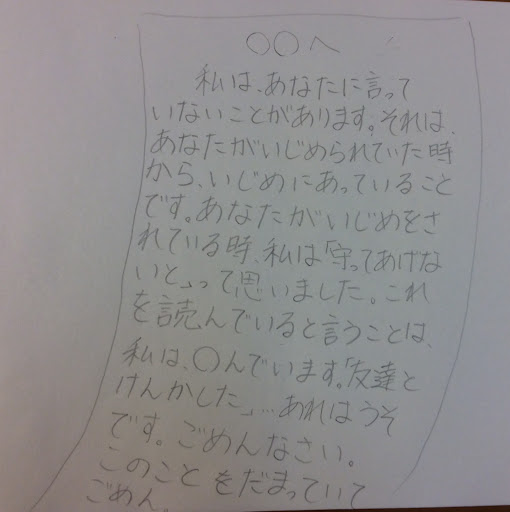 ○○へ
私は、あなたに言って
いないことがあります。それは、
あなたがいじめられていた時
から、いじめにあっていること
です。あなたがいじめをさ
れている時、私は「守ってあげな
いと」って思いました。これ
を読んでいると言うことは、
私は、○んでいます。「友達と
けんかした」…あれはうそ
です。ごめんなさい。
このことをだまっていて
ごめん。